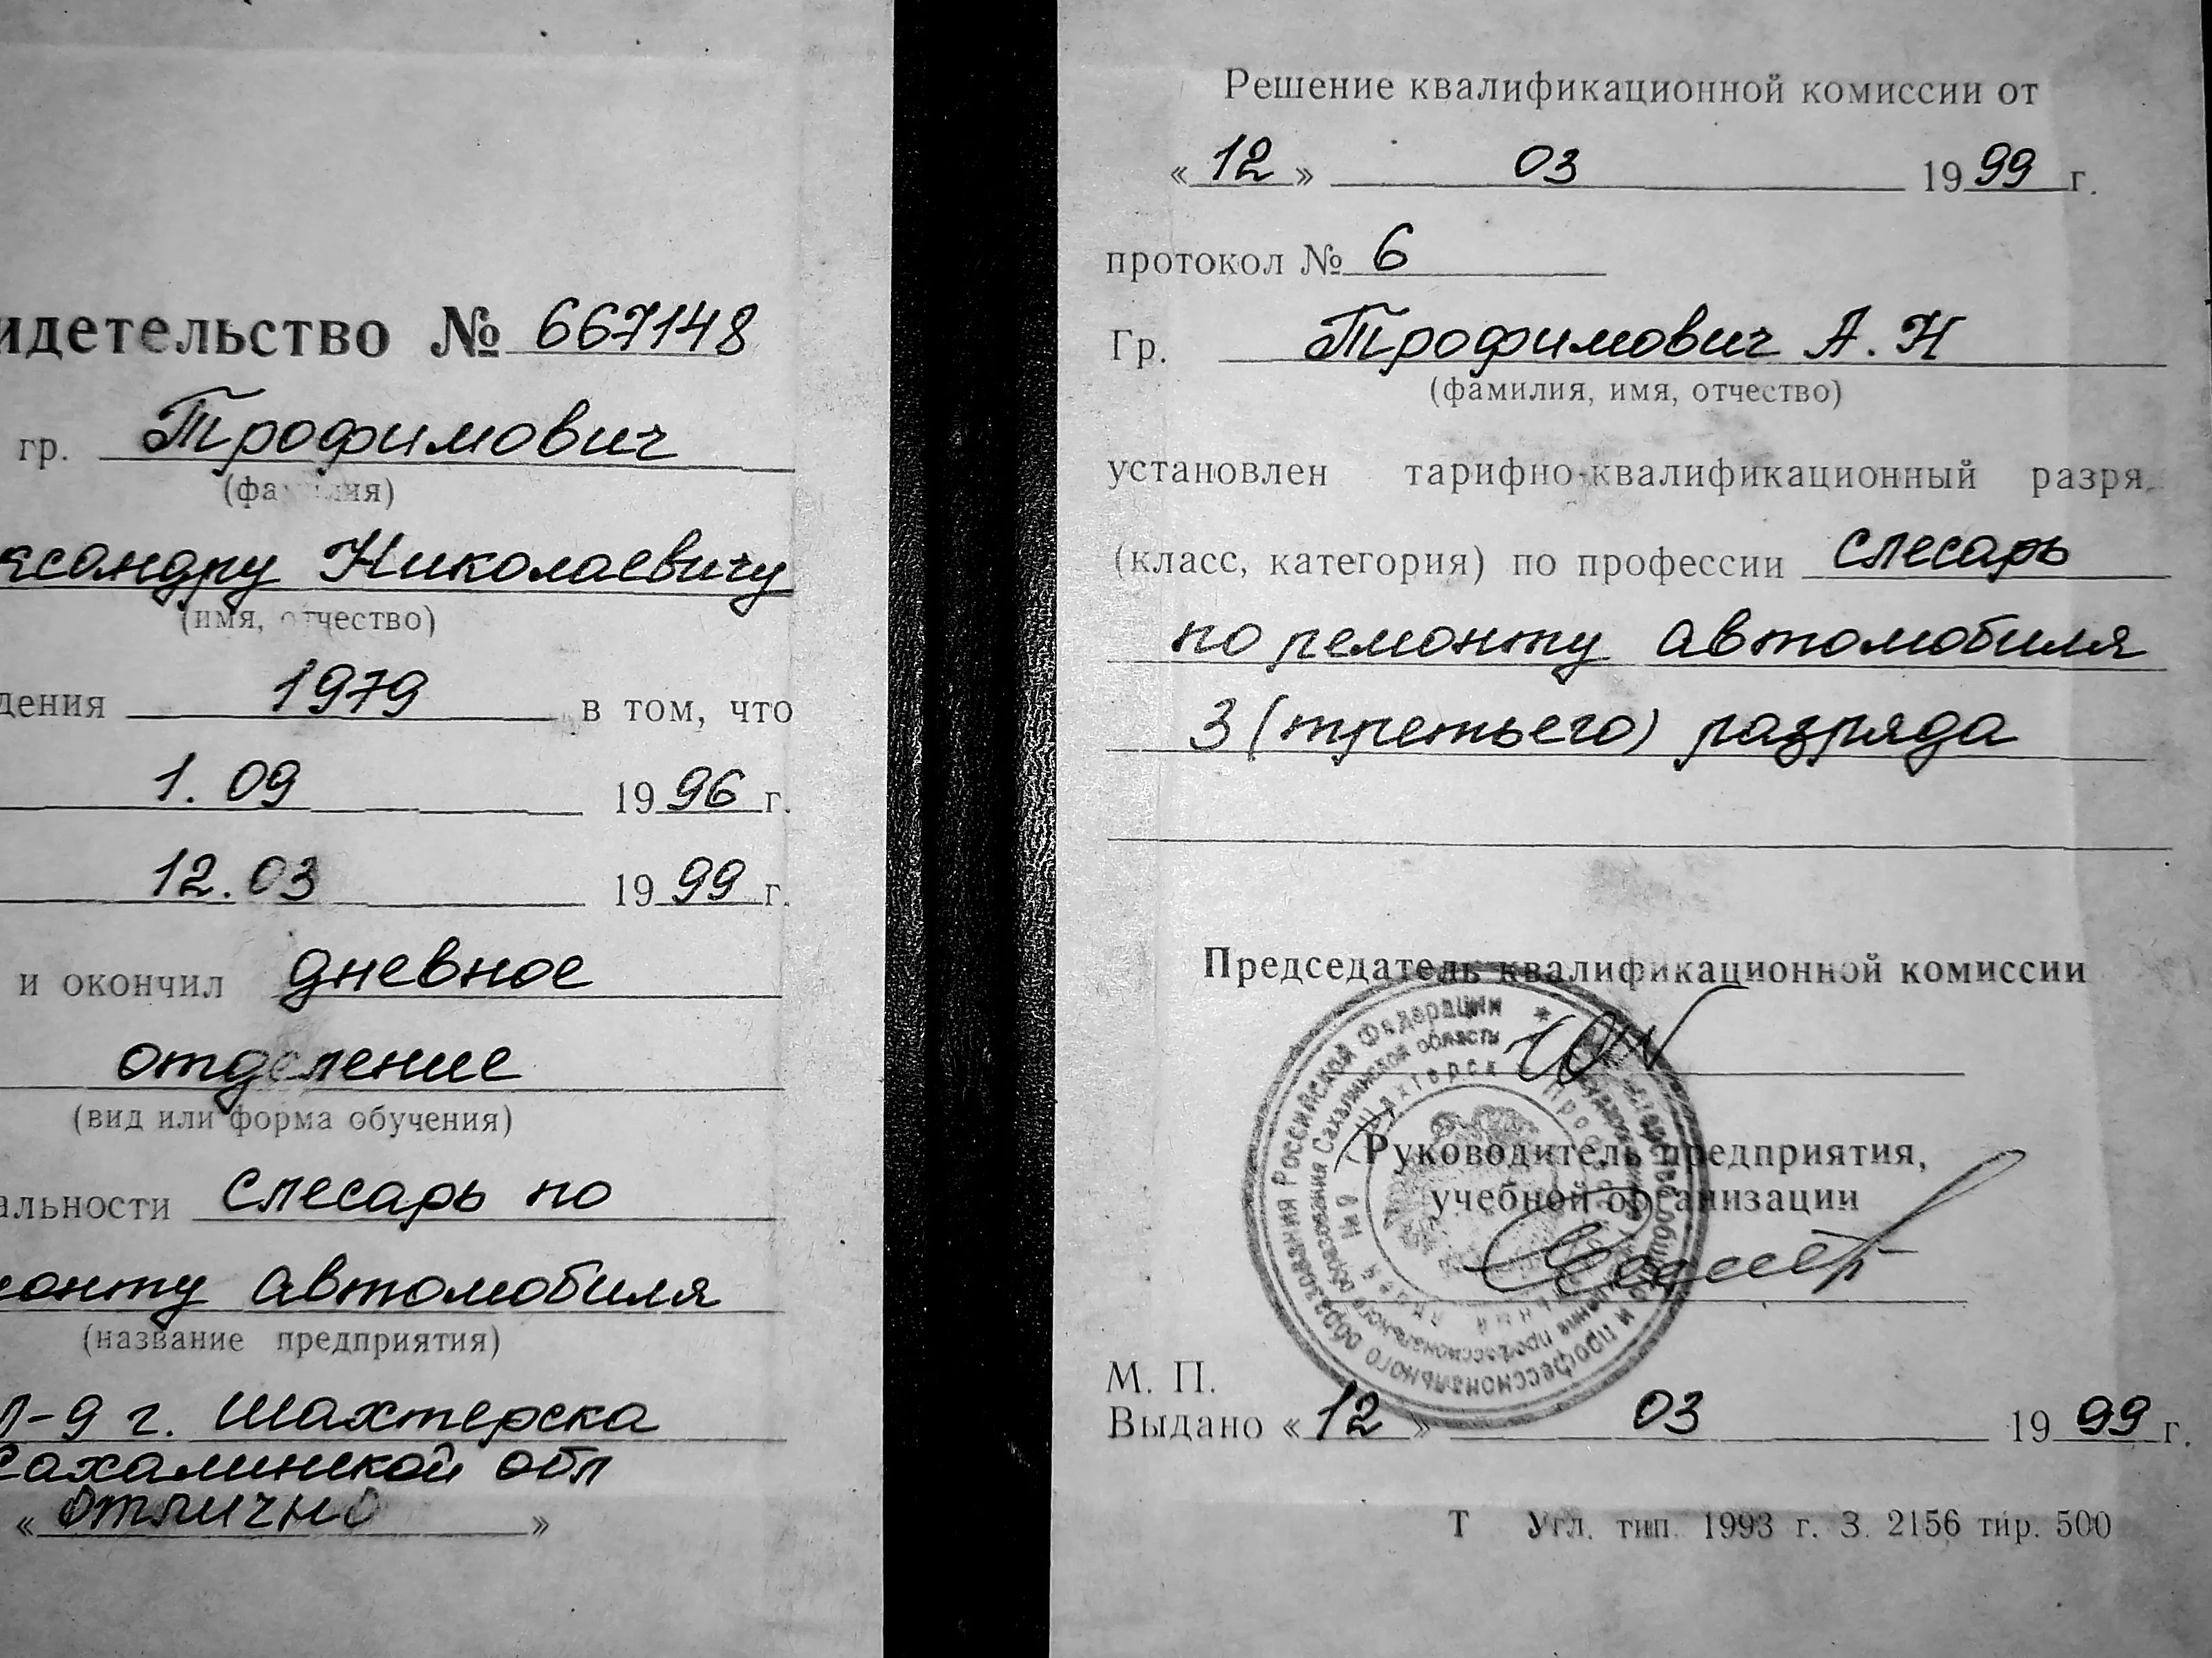 идетельство № 667148
гр. Трофимович
(фамилия)
ксандру Николаевичу
(имя, отчество)
дения 1979 в том, что
1.09 1996 г.
12.03 1999 г.
и окончил дневное
отделение
(вид или форма обучения)
альности слесарь по
монту автомобиля
(название предприятия)
Л-9 г. Шахтерска
Сахалинской обл
« отлично »
Решение квалификационной комиссии от
« 12 » 03 1999 г.
протокол № 6
Гр. Трофимович А. Н
(фамилия, имя, отчество)
установлен тарифно-квалификационный разря
(класс, категория) по профессии слесарь
по ремонту автомобиля
3 (третьего) разряда
Председатель квалификационной комиссии
Руководитель предприятия,
учебной организации
профессионального образования Российской Федерации
профессионального образования Сахалинской области
г. Шахтерск
М. П.
Выдано « 12 » 03 1999 г.
Т Угл. тип. 1993 г. З. 2156 тир. 500